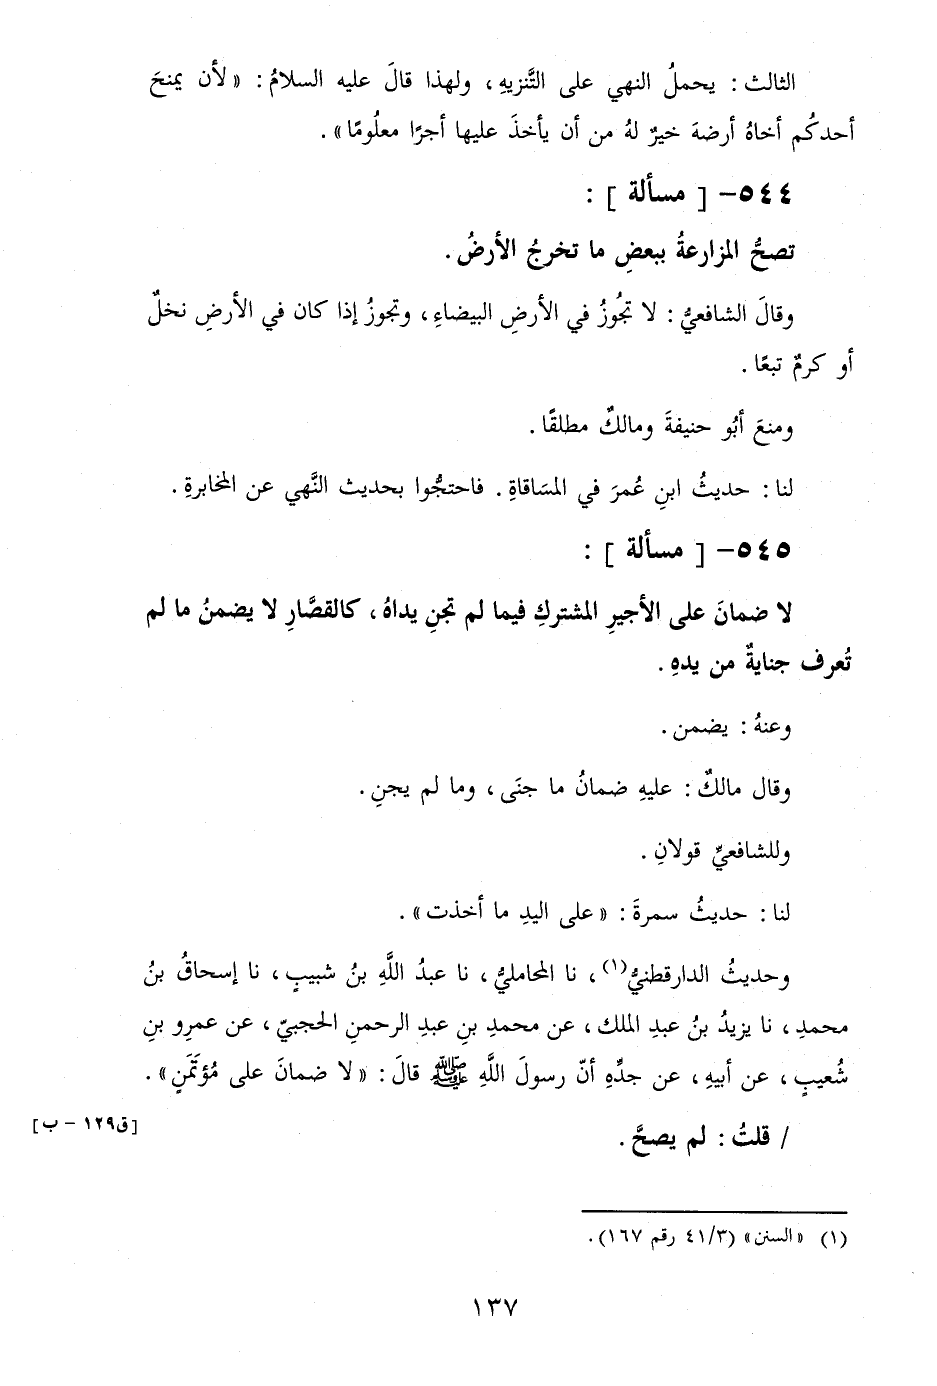 الثالث : يحملُ النهي على التَّنزيهِ ، ولهذا قالَ عليه السلامُ : « لأن يمنحَ
أحدكُم أخاهُ أرضهَ خيرٌ لهُ من أن يأخذَ عليها أجرًا معلُومًا » .
٥٤٤- [ مسألة ] :
تصحُّ المزارعةُ ببعضِ ما تخرجُ الأرضُ .
وقالَ الشافعيُّ : لا تجُوزُ في الأرضِ البيضاءِ ، وتجوزُ إذا كان في الأرضِ نخلٌ
أو كرمٌ تبعًا .
ومنعَ أبُو حنيفةَ ومالكٌ مطلقًا .
لنا : حديثُ ابنِ عُمرَ في المسَاقاةِ . فاحتجُّوا بحديث النَّهي عن المخابرةِ .
٥٤٥- [ مسألة ] :
لا ضمانَ على الأجيرِ المشتركِ فيما لم تجنِ يداهُ ، كالقصَّارِ لا يضمنُ ما لم
تُعرف جنايةٌ من يدهِ .
وعنهُ : يضمن .
وقال مالكٌ : عليهِ ضمانُ ما جنَى ، وما لم يجنِ .
وللشافعيِّ قولانِ .
لنا : حديثُ سمرةَ : « على اليدِ ما أخذت » .
وحديثُ الدارقطنيُّ(١) ، نا المحامليُّ ، نا عبدُ اللَّهِ بنُ شبيبٍ ، نا إسحاقُ بنُ
محمدِ ، نا يزيدُ بنُ عبدِ الملك ، عن محمدِ بنِ عبدِ الرحمنِ الحجبيّ ، عن عمرِو بنِ
شُعيبٍ ، عن أبيهِ ، عن جدِّهِ أنّ رسولَ اللَّهِ ﷺ قالَ : « لا ضمانَ على مُؤتَمَنٍ » .
/ قلتُ : لم يصحَّ .
[ق١٢٩ - ب]
(١) « السنن » (٤١/٣ رقم ١٦٧) .
١٣٧